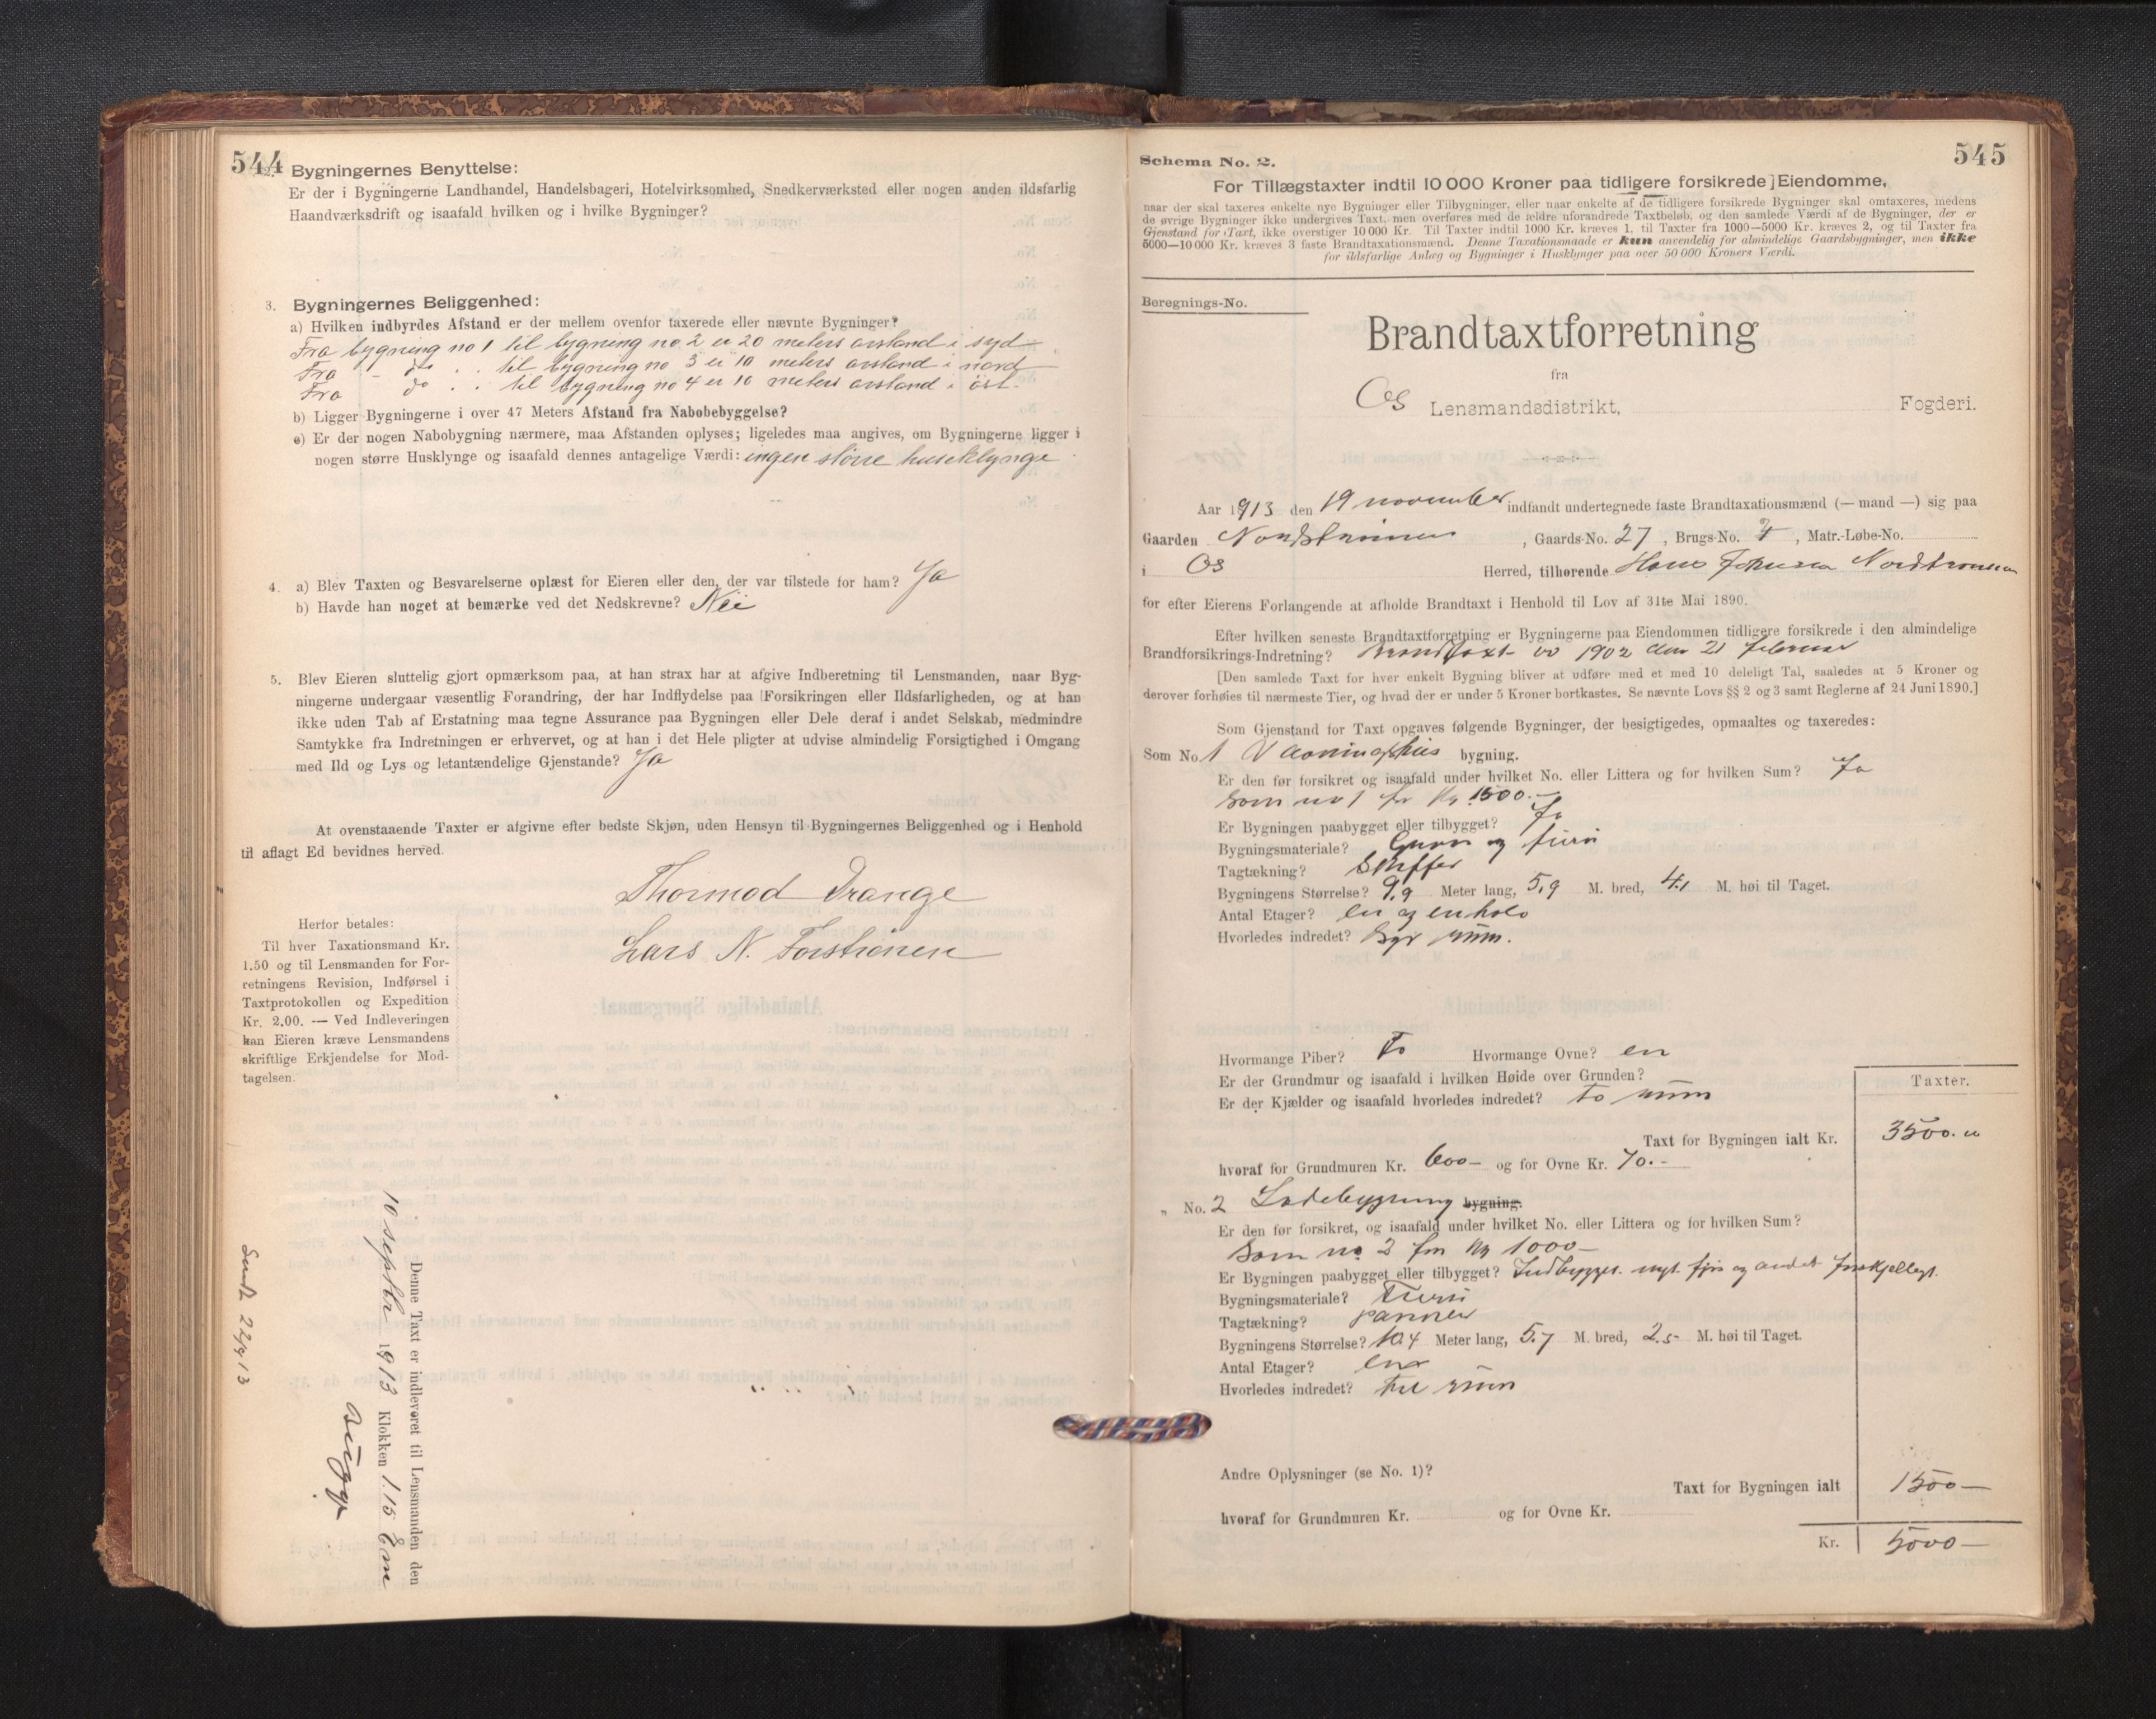 544
2. Bygningernes Benyttelse:
Er der i Bygningerne Landhandel, Handelsbageri, Hotelvirksomhed, Snedkerværksted eller nogen anden ildsfarlig
Haandværksdrift og isaafald hvilken og i hvilke Bygninger?
3. Bygningernes Beliggenhed:
a) Hvilken indbyrdes Afstand er der mellem ovenfor taxerede eller nævnte Bygninger?
Fra bygning no 1 til bygning no 2 er 20 meters avstand i syd
Fra - do . . til bygning no 3 er 10 meters avstand i nord
Fra do . . til bygning no 4 er 10 meters avstand i öst.
b) Ligger Bygningerne i over 47 Meters Afstand fra Nabobebyggelse?
c) Er der nogen Nabobygning nærmere, maa Afstanden oplyses; ligeledes maa angives, om Bygningerne ligger i
nogen større Husklynge og isaafald dennes antagelige Værdi: ingen större huseklynge
4. a) Blev Taxten og Besvarelserne oplæst for Eieren eller den, der var tilstede for ham? Ja
b) Havde han noget at bemærke ved det Nedskrevne? Nei
5. Blev Eieren sluttelig gjort opmærksom paa, at han strax har at afgive Indberetning til Lensmanden, naar Byg-
ningerne undergaar væsentlig Forandring, der har Indflydelse paa Forsikringen eller Ildsfarligheden, og at han
ikke uden Tab af Erstatning maa tegne Assurance paa Bygningen eller Dele deraf i andet Selskab, medmindre
Samtykke fra Indretningen er erhvervet, og at han i det Hele pligter at udvise almindelig Forsigtighed i Omgang
med Ild og Lys og letantændelige Gjenstande? Ja
At ovenstaaende Taxter er afgivne efter bedste Skjøn, uden Hensyn til Bygningernes Beliggenhed og i Henhold
til aflagt Ed bevidnes herved.
Thormod Drange
Lars N. Forströnen
Herfor betales:
Til hver Taxationsmand Kr.
1.50 og til Lensmanden for For-
retningens Revision, Indførsel i
Taxtprotokollen og Expedition
Kr. 2.00. — Ved Indleveringen
kan Eieren kræve Lensmandens
skriftlige Erkjendelse for Mod-
tagelsen.
Denne Taxt er indleveret til Lensmanden den
10 septbr 1913 Klokken 1.15 Em
545
Schema No. 2.
For Tillægstaxter indtil 10 000 Kroner paa tidligere forsikrede Eiendomme,
naar der skal taxeres enkelte nye Bygninger eller Tilbygninger, eller naar enkelte af de tidligere forsikrede Bygninger skal omtaxeres, medens
de øvrige Bygninger ikke undergives Taxt, men overføres med de ældre uforandrede Taxtbeløb, og den samlede Værdi af de Bygninger, der er
Gjenstand for Taxt, ikke overstiger 10 000 Kr. Til Taxter indtil 1000 Kr. kræves 1, til Taxter fra 1000—5000 Kr. kræves 2, og til Taxter fra
5000—10 000 Kr. kræves 3 faste Brandtaxationsmænd. Denne Taxationsmaade er kun anvendelig for almindelige Gaardsbygninger, men ikke
for ildsfarlige Anlæg og Bygninger i Husklynger paa over 50 000 Kroners Værdi.
Beregnings-No.
Brandtaxtforretning
fra
Os Lensmandsdistrikt, Fogderi.
Aar 1913 den 19 november indfandt undertegnede faste Brandtaxationsmænd (— mand —) sig paa
Gaarden , Gaards-No. 27 , Brugs-No. , Matr.-Løbe-No.
i Os Herred, tilhørende Hans Johnsen
for efter Eierens Forlangende at afholde Brandtaxt i Henhold til Lov af 31te Mai 1890.
Efter hvilken seneste Brandtaxtforretning er Bygningerne paa Eiendommen tidligere forsikrede i den almindelige
Brandforsikrings-Indretning? Brandtaxt av 1902 den 21 februar
[Den samlede Taxt for hver enkelt Bygning bliver at udføre med et med 10 deleligt Tal, saaledes at 5 Kroner og
derover forhøies til nærmeste Tier, og hvad der er under 5 Kroner bortkastes. Se nævnte Lovs §§ 2 og 3 samt Reglerne af 24 Juni 1890.]
Som Gjenstand for Taxt opgaves følgende Bygninger, der besigtigedes, opmaaltes og taxeredes:
Som No 1 Vaaningshus bygning.
Er den før forsikret og isaafald under hvilket No. eller Littera og for hvilken Sum? Ja
Som no 1 for Kr 1500.—
Er Bygningen paabygget eller tilbygget? Ja
Bygningsmateriale? og furu
Tagtækning? Skiffer
Bygningens Størrelse? 9,9 Meter lang, 5,9 M. bred, 4,1 M. høi til Taget.
Antal Etager? en og en halv
Hvorledes indredet? syv rum.
Hvormange Piber? To Hvormange Ovne? en
Er der Grundmur og isaafald i hvilken Høide over Grunden?
Er der Kjælder og isaafald hvorledes indredet? to rum
Taxter.
Taxt for Bygningen ialt Kr. 3500.
hvoraf for Grundmuren Kr. 600— og for Ovne Kr. 70.-
„ No. 2 Ladebygning bygning.
Er den før forsikret, og isaafald under hvilket No. eller Littera og for hvilken Sum?
Som no 2 for Kr 1000—
Er Bygningen paabygget eller tilbygget? Indbygget nyt fjøs og andet forskjelligt.
Bygningsmateriale? Furu
Tagtækning? panner
Bygningens Størrelse? 10,4 Meter lang, 5.7 M. bred, 2.5 M. høi til Taget.
Antal Etager? en
Hvorledes indredet? tre rum
Andre Oplysninger (se No. 1)?
Taxt for Bygningen ialt 1500—
hvoraf for Grundmuren Kr. og for Ovne Kr.
Kr. 5000—